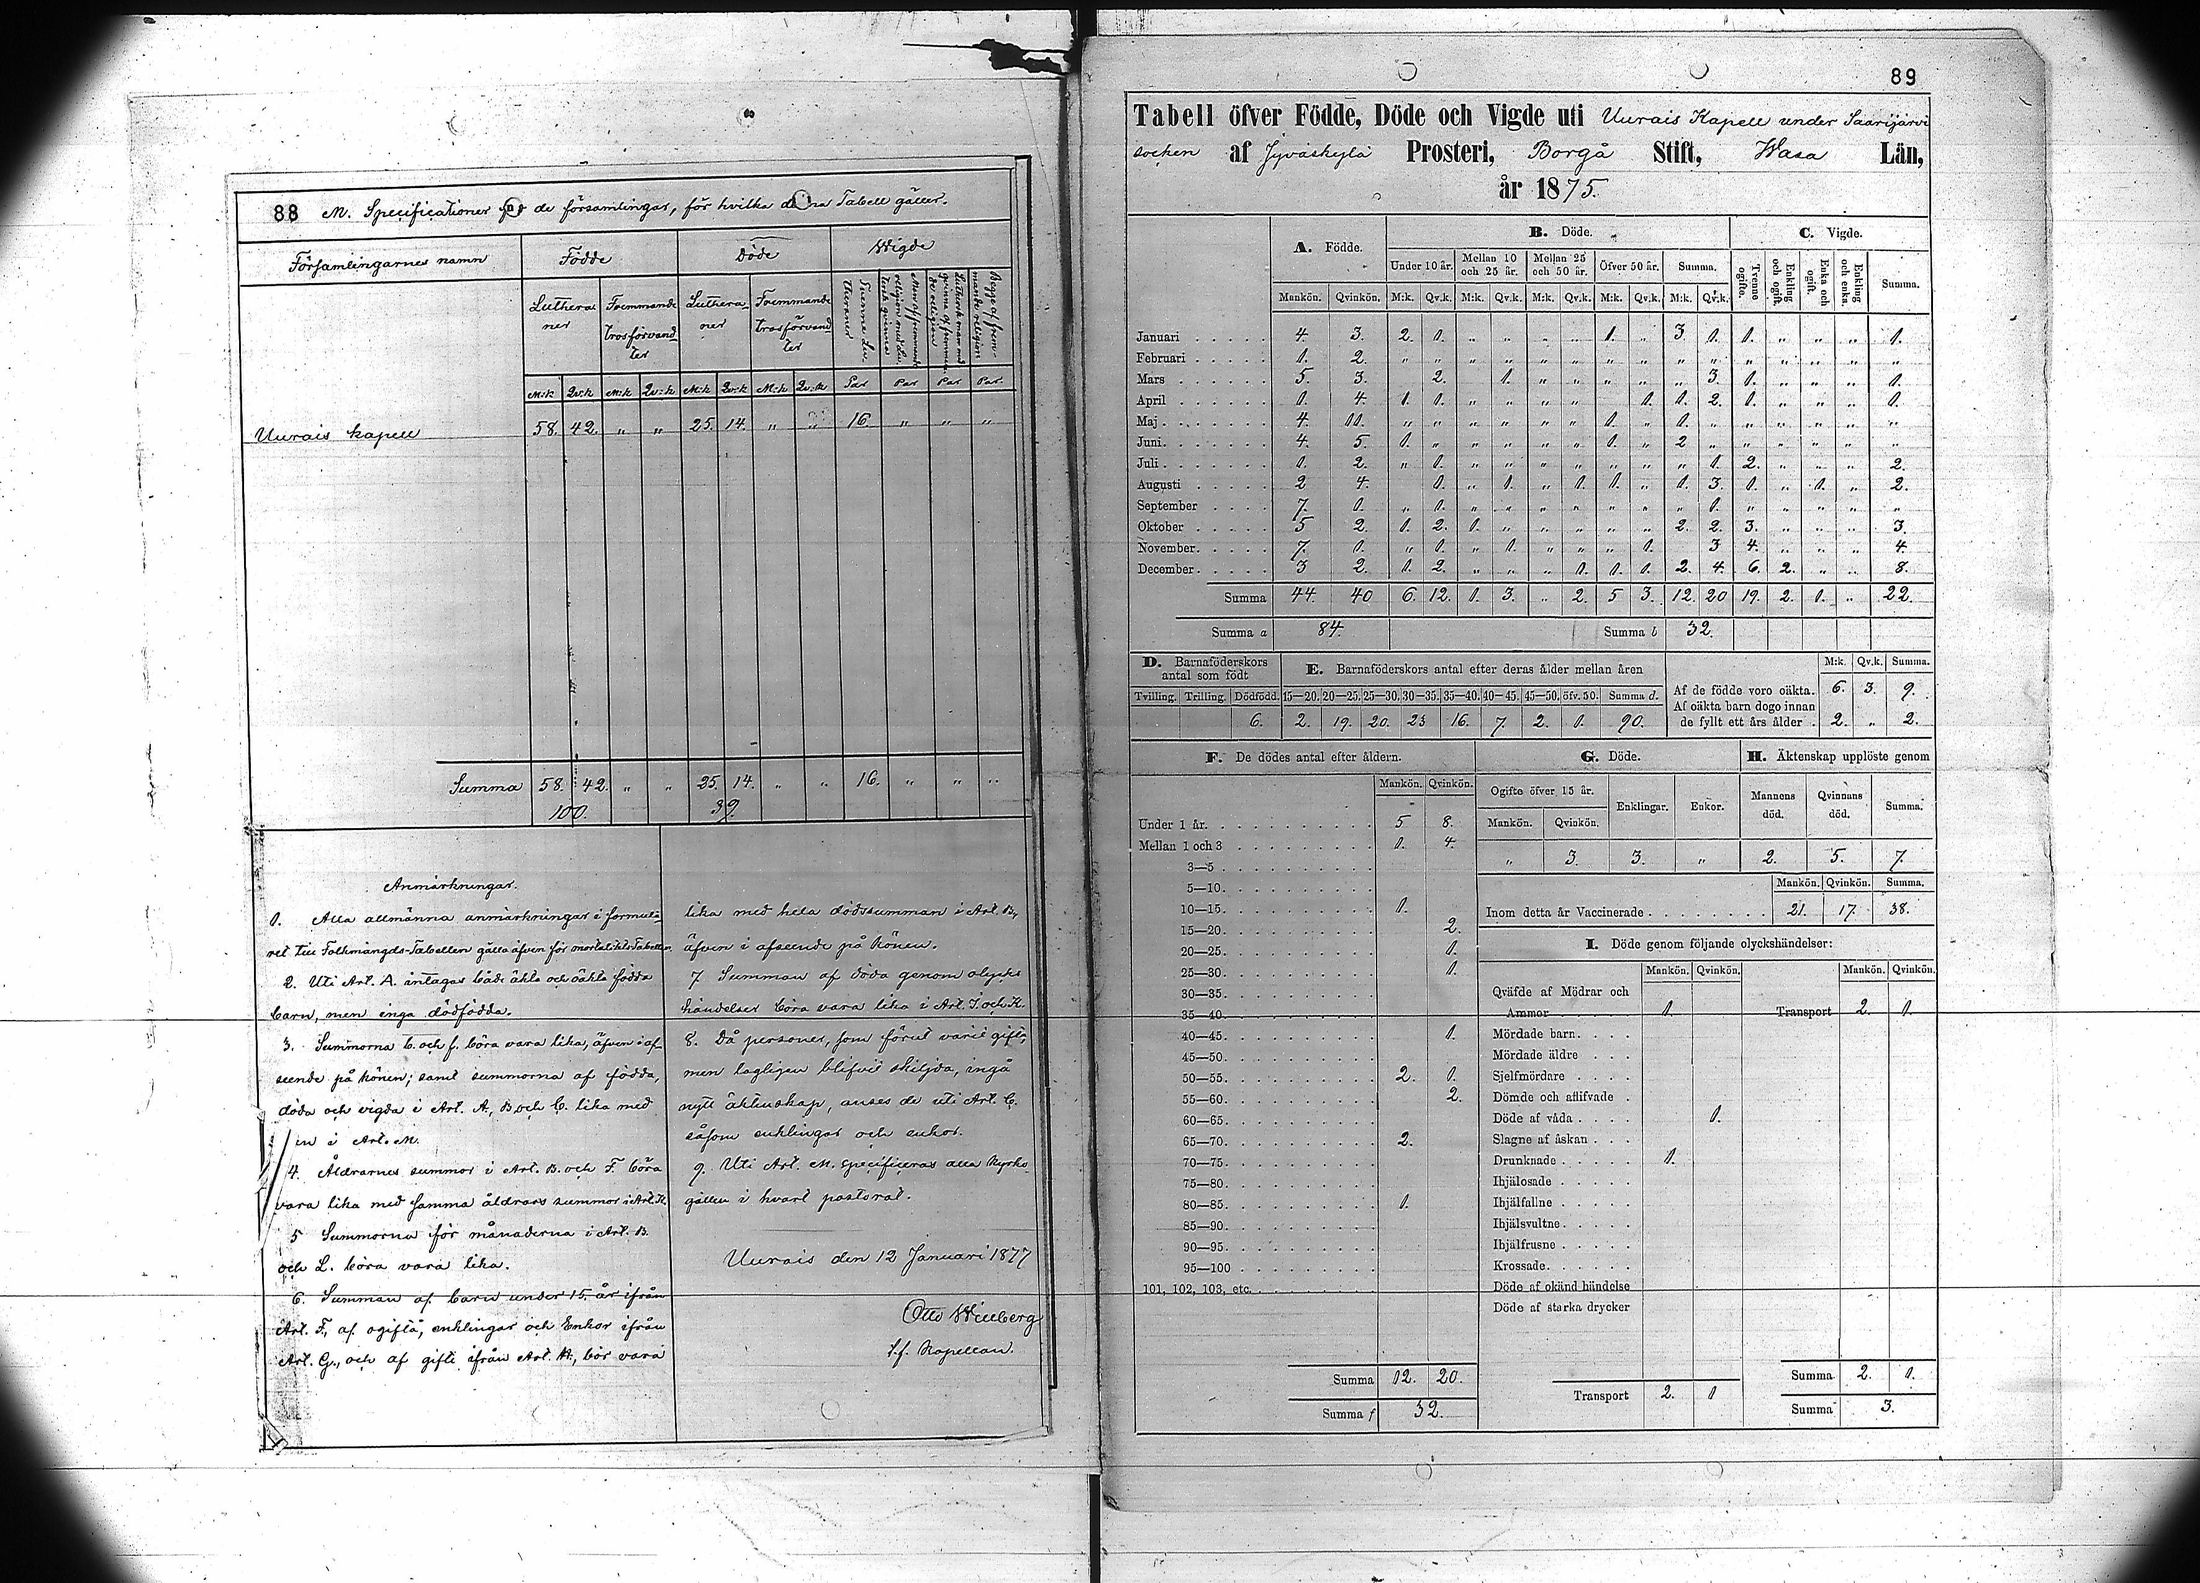 88 M. Specificationer på de församlingar, för hvilka denna Tabell gäller.
Församlingarnes namn Födde Döde Wigde
Lutheraner Fremmande trosförvandter Lutheraner Fremmande trosförvandter
M:k Qv:k M:k Qv:k M:k Qv:k M:k Qv:k Par Par Par Par
Uurais kapell 58. 42. „ „ 25. 14. „ „ 16. „ „ „
Summa 58. 42. „ „ 25. 14. „ „ 16. „ „ „
100. 39.
Anmärkningar.
1. Alla allmänna anmärkningar i formulä-
ret till Folkmängds-Tabellen gälla äfven för mortalitets-Tabellen.
2. Uti Art. A. intagas både äkta och oäkta födda
barn, men inga dödfödda.
3. Summorna b. och f. böra vara lika, äfven i af-
seende på könen; samt summorna af födda,
döda och vigda i Art. A., B. och C. lika med
in i Art. M.
4. Åldrarnes summor i Art. B. och F. böra
vara lika med samma åldrars summor i Art. K.
5 Summorna för månaderna i Art. B.
och L. böra vara lika.
6. Summan af barn under 15 år ifrån
Art. F., af ogifta, enklingar och Enkor ifrån
Art. G., och af gifte ifrån Art. H., bör vara
lika med hela dödssumman i Art. B.,
äfven i afseende på könen.
7. Summan af döda genom olycks
händelser böra vara lika i Art. I. och K.
8. Då personer, som förut varit gifta,
men lagligen blifvit skiljda, ingå
nytt äktenskap, anses de uti Art. C.
såsom enklingar och enkor.
9. Uti Art. M. specificeras alla Kyrko-
gällen i hvart pastorat.
Uurais den 12 Januari 1877
Otto Willberg
t.f. Kapellan.
89
Tabell öfver Födde, Döde och Vigde uti Uurais Kapell under Saarijärvi
socken af Jyväskylä Prosteri, Borgå Stift, Wasa Län,
år 1875.
A. Födde. B. Döde. C. Vigde.
Under 10 år. Mellan 10 och 25 år. Mellan 25 och 50 år. Öfver 50 år. Summa. Tvenne ogifte. Enkling och ogift. Enka och ogift. Enkling och enka. Summa.
Mankön. Qvinkön. M:k. Qv.k. M:k. Qv.k. M:k. Qv.k. M:k. Qv.k. M:k. Qv.k.
Januari 4. 3. 2. 1. „ „ „ „ 1. „ 3 1. 1. „ „ „ 1.
Februari 1. 2. „ „ „ „ „ „ „ „ „ „ „ „ „ „ „
Mars 5. 3. 2. „ 1. „ „ „ „ „ 3. 1. „ „ „ 1.
April 1. 4. 1. 1. „ „ „ „ 1. 1. 2. 1. „ „ „ 1.
Maj 4. 11. „ „ „ „ „ „ 1. „ 1. „ „ „ „ „ „
Juni 4. 5. 1. „ „ „ „ „ 1. „ 2 „ „ „ „ „ „
Juli 1. 2. „ 1. „ „ „ „ „ „ „ 1. 2. „ „ „ 2.
Augusti 2 4. 1. „ 1. „ 1. 1. „ 1. 3. 1. „ 1. „ 2.
September 7. 1. „ 1. „ „ „ „ „ „ „ 1. „ „ „ „ „
Oktober 5 2. 1. 2. 1. „ „ „ „ „ 2. 2. 3. „ „ „ 3.
November 7. 1. „ 1. „ 1. „ „ „ 1. 3 4. „ „ „ 4.
December 3 2. 1. 2. „ „ „ 1. 1. 1. 2. 4. 6. 2. „ „ 8.
Summa 44. 40 6. 12. 1. 3. „ 2. 5 3. 12. 20 19. 2. 1. „ 22.
Summa a 84. Summa b 32.
D. Barnaföderskors antal som födt
Tvilling. Trilling. Dödfödd.
6.
E. Barnaföderskors antal efter deras ålder mellan åren
15—20. 20—25. 25—30. 30—35. 35—40. 40—45. 45—50. öfv. 50. Summa d.
2. 19. 20. 23 16. 7. 2. 1. 90.
M:k. Qv.k. Summa.
Af de födde voro oäkta. 6. 3. 9.
Af oäkta barn dogo innan
de fyllt ett års ålder. 2. „ 2.
F. De dödes antal efter åldern.
Mankön. Qvinkön.
Under 1 år. 5 8.
Mellan 1 och 3 1. 4.
3—5
5—10.
10—15. 1.
15—20. 2.
20—25. 1.
25—30. 1.
30—35.
35—40.
40—45. 1.
45—50.
50—55. 2. 1.
55—60. 2.
60—65.
65—70. 2.
70—75.
75—80.
80—85. 1.
85—90.
90—95.
95—100
101, 102, 103, etc.
Summa 12. 20.
Summa f 32.
G. Döde.
Ogifte öfver 15 år. Enklingar. Enkor.
Mankön. Qvinkön.
„ 3. 3. „
H. Äktenskap upplöste genom
Mannens död. Qvinnans död. Summa.
2. 5. 7.
Mankön. Qvinkön. Summa.
Inom detta år Vaccinerade 21. 17. 38.
I. Döde genom följande olyckshändelser:
Mankön. Qvinkön. Mankön. Qvinkön.
Qväfde af Mödrar och
Ammor 1. Transport 2. 1.
Mördade barn.
Mördade äldre
Sjelfmördare
Dömde och aflifvade
Döde af våda 1.
Slagne af åskan
Drunknade 1.
Ihjälosade
Ihjälfallne
Ihjälsvultne
Ihjälfrusne
Krossade.
Döde af okänd händelse
Döde af starka drycker
Summa 2. 1.
Transport 2. 1
Summa 3.